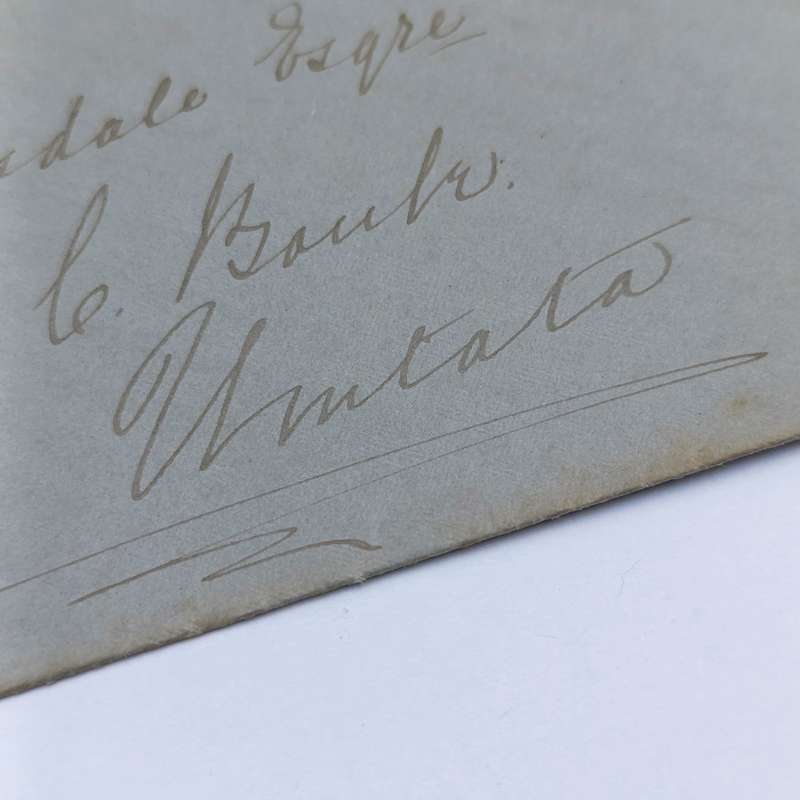 dale Esqre
C. Bank.
Umtata